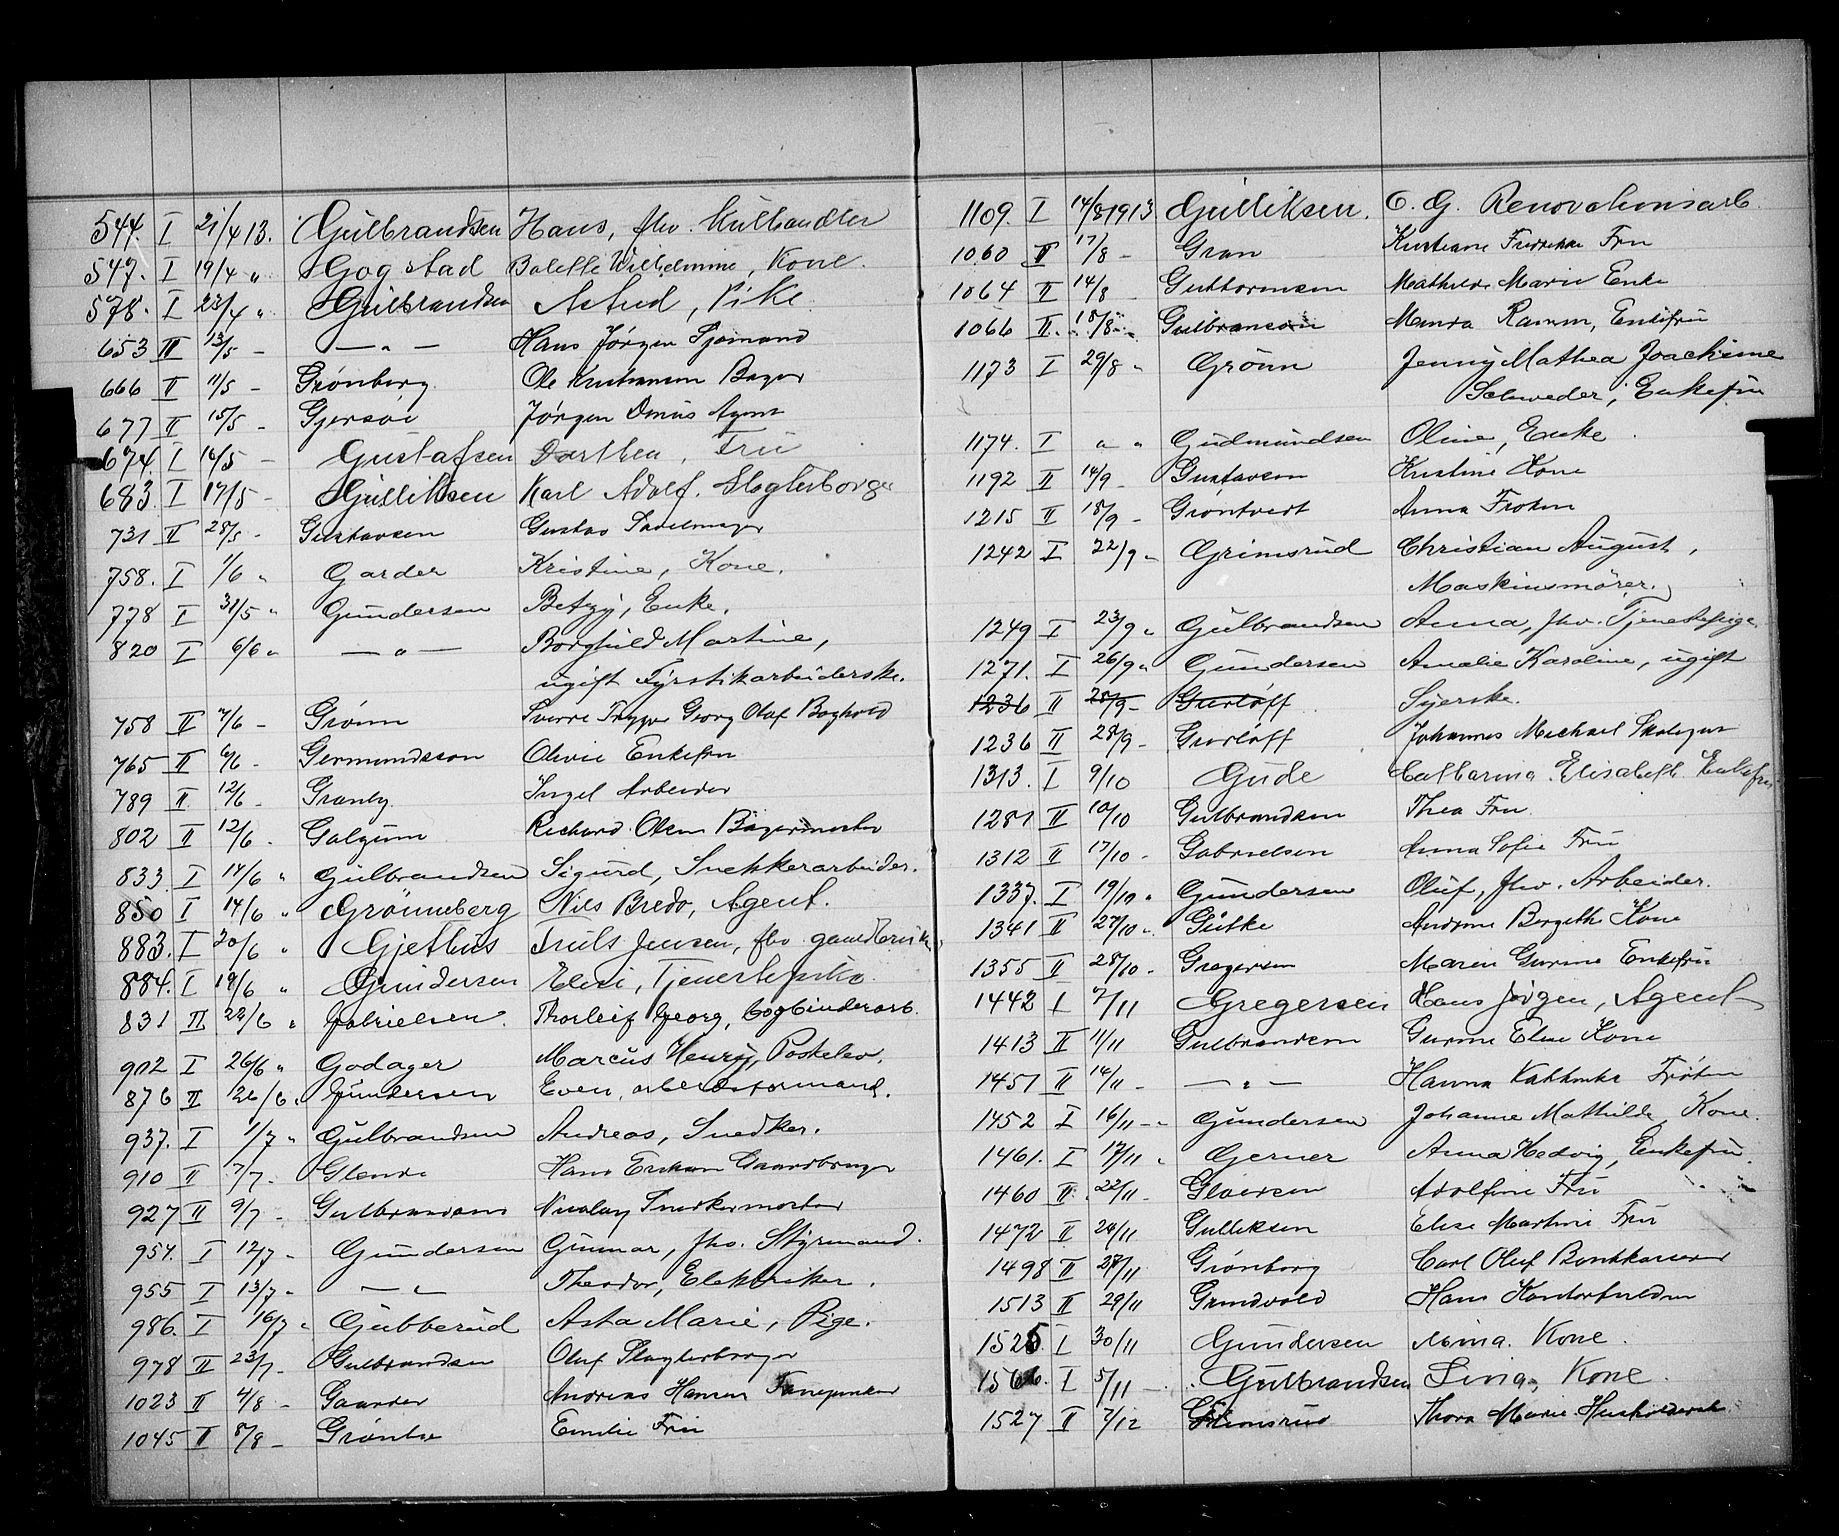 544. I 21/4 13. Gulbrandsen Hans, fhv. Kulhandler
547. I 19/4 „ Gogstad Bolette Wilhelmine, Kone.
578. I 23/4 „ Gulbrandsen Astrid, Pike
653 III 13/5 — — „ — Hans Jørgen Sjømand
666 II 11/5 — Grønberg Ole Kristiansen Bager
677 II 15/5 — Gjersøe Jørgen Agent
674. I 16/5 — Gustafsen Dorthea, Frue
683. I 17/5 — Gulliksen Karl Adolf. Slagterborger
731 II 28/5 - Gustavsen Gustav Sadelmager
758. I 1/6 „ Garder Kristine, Kone.
778 I 31/5 „ Gundersen Betzy, Enke.
820 I 6/6 „ — „ — Borghild Martine,
ugift Fyrstikarbeiderske.
758 II 7/6 — Grønn Sverre Trygve Georg Olaf Boghold
765 II 6/6 - Germundsson Olivie Enkefru
789 II 12/6 - Granly Ingel Arbeider
802 II 12/6 . Galgum Richard Olsen Bagermester
833. I 14/6 „ Gulbrandsen Sigurd, Snekkerarbeider.
850 I 14/6 „ Grønneberg Nils Bredo, Agent.
883. I 20/6 „ Gjethus Truls Jensen, fhv.
884. I 19/6 „ Gundersen Elesi,
831 II 22/6 „ Gabrielsen. Thorleif Georg, bogbinderarb.
902 I 26/6 „ Godager Marcus Henry, Postelev.
876 II 26/6 „ Gundersen Even, arbeidsformand.
937. I 1/7 „ Gulbrandsen Andreas, Snedker.
910 II 7/7 . Glende Hans Eriksen Gaardbruger
927 II 9/7 — Gulbrandsen Nicolay Snedkermester
954. I 12/7 „ Gundersen Gunnar, fhv. Styrmand.
955 I 13/7 „ — „ — Theodor, Elektriker.
986. I 16/7 „ Gubberud Asta Marie, Pige.
978 II 23/7 - Gulbrandsen Oluf Slagterborger
1023 II 4/8 - Gaarder Andreas Hansen
1045 II 8/8 — Grønlie Emilie Fru
1109. I 14/8 1913 Gulliksen. O. G. Renovationsarb.
1060 II 17/8 — Gran Kristiane Fredrikke Fru
1064 II 14/8 — Guttormsen Mathilde Marie Enke
1066 II 18/8 Gulbransen Minda Ramm, Enkefru
1173 I 29/8 „ Grönn Jenny Mathea Joachime
Schweder, Enkefru
1174. I „ „ Gudmundsen Oline, Enke.
1192 II 14/9 - Gustavsen Kristine Kone
1215 II 18/9 — Grøntvedt Anna Frøken
1242 I 22/9 „ Grimsrud Christian August,
Maskinsmører.
1249 I 23/9 „ Gulbrandsen Anna, fhv. Tjenestepige.
1271. I 26/9 „ Gundersen Amalie Karoline, ugift
1236 II 28/9 — Garløff Syerske.
1236 II 28/9 — Garløff Johannes Michael
1313. I 9/10 Gude Catharina Elisabeth Enkefru
1281 II 10/10 Gulbrandsen Thea Fru
1312 II 17/10 - Gabrielsen Anna Sofie Fru
1337. I 19/10 „ Gundersen Oluf, fhv. Arbeider.
1341 II 27/10 „ Gütke Andrine Borgitte Kone
1355 II 28/10 - Gregersen Maren Gurine Enkefru
1442 I 7/11 Gregersen Hans Jørgen, Agent
1413 II 11/11 Gulbrandsen Gurine Elise Kone
1451 II 14/11 — — „ — Hanna Kathinka Frøken
1452 I 16/11 — Gundersen Johanne Mathilde, Kone.
1461. I 17/11 „ Gerner Anna Hedvig, Enkefru.
1460 II 22/11 — Gloersen Adolfine Fru
1472 II 24/11 Gulliksen Elise Martine Fru
1498 II 27/11 Grønborg Carl Oluf Bankkasserer
1513 II 29/11 Grindvold Hans
1525 I 30/11 Gundersen Anna. Kone.
1566. I 5/11 — Gulbrandsen Lina, Kone.
1527 II 7/12 Grimsrud Thora Marie Husholderske